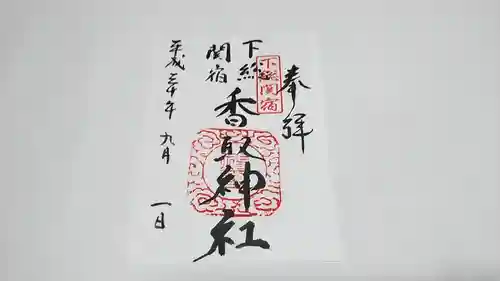 奉拝
下総
関宿
下総関宿
香取神社
平成三十年
九月
一日